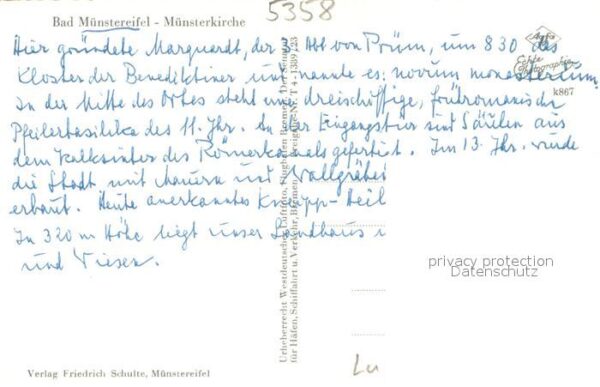 5358
Bad Münstereifel - Münsterkirche
Hier gründete Marquardt, der 3. Abt von Prüm, um 830 das
Kloster der Benediktiner und nannte es: novum monasterium.
In der Mitte des Ortes steht eine dreischiffige, frühromanische
Pfeilerbasilika des 11. Jhr. An der Eingangstür sind Säulen aus
dem Kalksinter des Römerkanals gefertigt. Im 13. Jhr. wurde
die Stadt mit Mauern und Wallgräben
erbaut. Heute anerkanntes Kneipp-Heil
In 320 m Höhe liegt unser Landhaus i
und Wiesen.
Agfa
Echte Photographie
k867
Urheberrecht Westdeutscher Luftfoto, Flughafen Bremen. Der Senator
für Häfen, Schiffahrt u. Verkehr, Bremen.
privacy protection
Datenschutz
Verlag Friedrich Schulte, Münstereifel